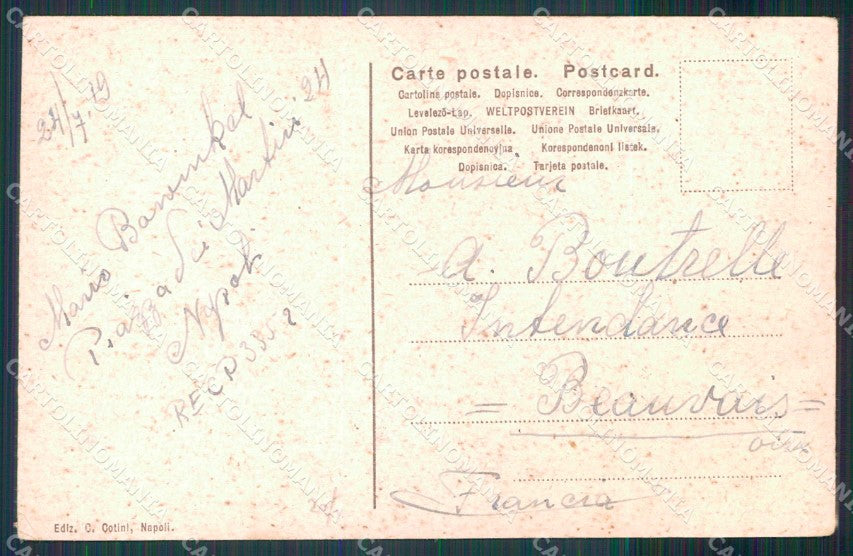 24/7.19
Mario
Piazza dei Martiri 24
Napoli
RECP
Carte postale. Postcard.
Cartolina postale. Dopisnice. Correspondenzkarte.
Levelező-Lap. WELTPOSTVEREIN Briefkaart.
Union Postale Universelle. Unione Postale Universale.
Karta korespondencyjna Korespondenoni listek.
Dopisnica. Tarjeta postale.
Monsieur
A. Boutrelle
Intendance
= Beauvais =
Oise
Francia
Ediz. C. Cotini, Napoli.
CARTOLINOMANIA